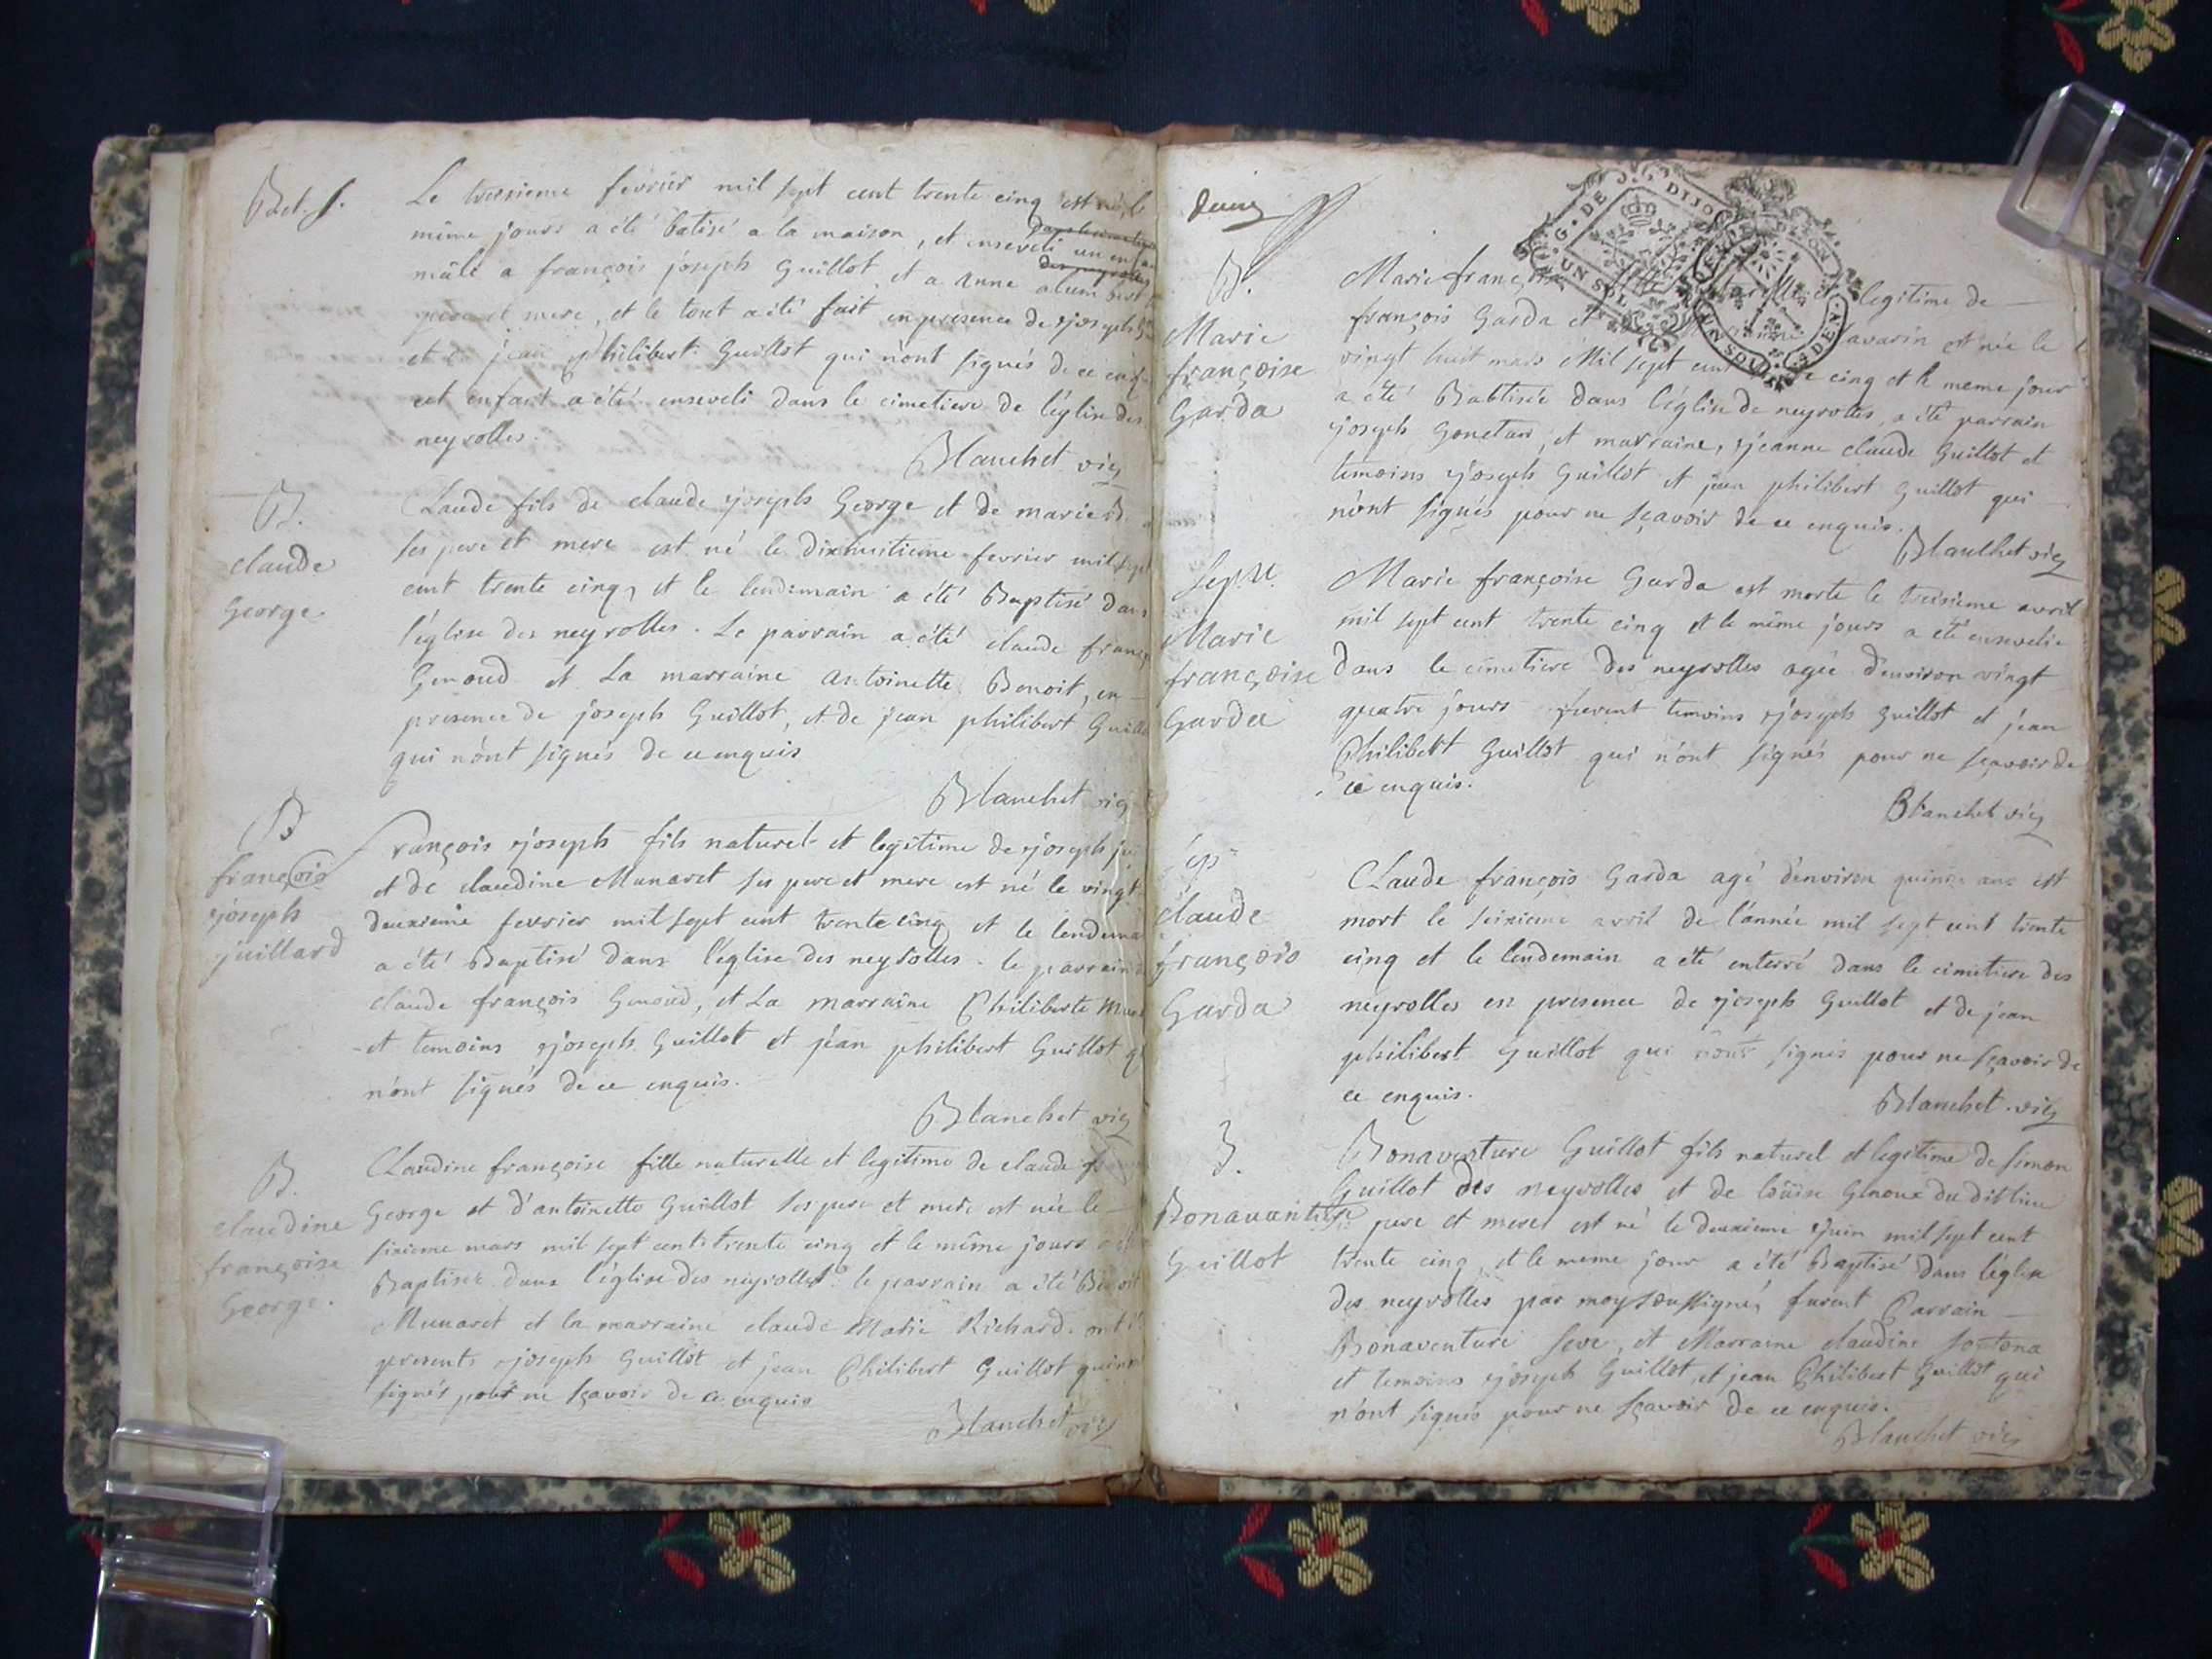 B et S.
Le troisieme fevrier mil sept cent trente cinq est né, le
même jours a été batisé a la maison, et enseveli un
mâle a françois joseph Guillot et a anne
pere et mere, et le tout a été fait en presence de joseph
et de jean philibert Guillot qui n'ont signés de ce
cet enfant a été enseveli dans le cimetiere de l'église des
neyrolles.
Blanchet vic
B.
claude
George.
Claude fils de claude joseph George et de marie
ses pere et mere est né le dixhuitieme fevrier mil sept
cent trente cinq, et le lendemain a été Baptisé dans
l'église des neyrolles. Le parrain a été claude
Genoud et La marraine antoinette Benoit, en
presence de joseph Guillot, et de jean philibert Guillot
qui n'ont signés de ce enquis
Blanchet vic
B
françois
joseph
juillard
François joseph fils naturel et legitime de joseph
et de claudine Munaret ses pere et mere est né le vingt
deuxieme fevrier mil sept cent trente cinq et le
a été Baptisé dans l'église des neyrolles. le parrain
claude françois Genoud, et La marraine Philiberte
et temoins joseph Guillot et jean philibert Guillot
n'ont signés de ce enquis.
Blanchet vic
B.
claudine
françoise
George.
CLaudine françoise fille naturelle et legitime de claude
George et d'antoinette Guillot ses pere et mere est née le
sixieme mars mil sept cent trente cinq et le même jours
Baptisée dans l'église des neyrolles. le parrain a été
Munaret et la marraine claude Marie Richard.
presents joseph Guillot et jean Philibert Guillot
signés pour ne sçavoir de ce enquis
Blanchet vic
G. DE DIJON
UN SOL
B.
Marie
françoise
Garda
Marie françoise legitime de
françois Garda et Savarin est née le
vingt huit mars Mil sept cent cinq et le meme jour
a été Babtisée dans l'église de neyrolles, a été parrain
joseph Gonetan, et marraine, jeanne claude Guillot et
temoins joseph Guillot et jean philibert Guillot qui
n'ont signés pour ne sçavoir de ce enquis.
Blanchet vic
Marie
françoise
Garda
Marie françoise Garda est morte le treisieme avril
mil sept cent trente cinq et le même jours a été ensevelie
dans le cimetiere des neyrolles agée d'environ vingt
quatre jours furent temoins joseph Guillot et jean
Philibert Guillot qui n'ont signés pour ne sçavoir de
ce enquis.
Blanchet vic
claude
françois
Garda
CLaude françois Garda agé d'environ quinze ans est
mort le seixieme avril de l'année mil sept cent trente
cinq et le lendemain a été enterré dans le cimetiere des
neyrolles en presence de joseph Guillot et de jean
philibert Guillot qui n'ont signés pour ne sçavoir de
ce enquis.
Blanchet vic
B.
Bonavanture
Guillot
Bonaventure Guillot fils naturel et legitime de simon
Guillot des neyrolles et de loüise Genoux du dit lieu
pere et mere est né le deuxieme juin mil sept cent
trente cinq, et le meme jour a été Baptisé dans l'église
des neyrolles par moy soussigné, furent Parrain
Bonaventure seve, et Marraine claudine
et temoins joseph Guillot, et jean Philibert Guillot qui
n'ont signés pour ne sçavoir de ce enquis.
Blanchet vic